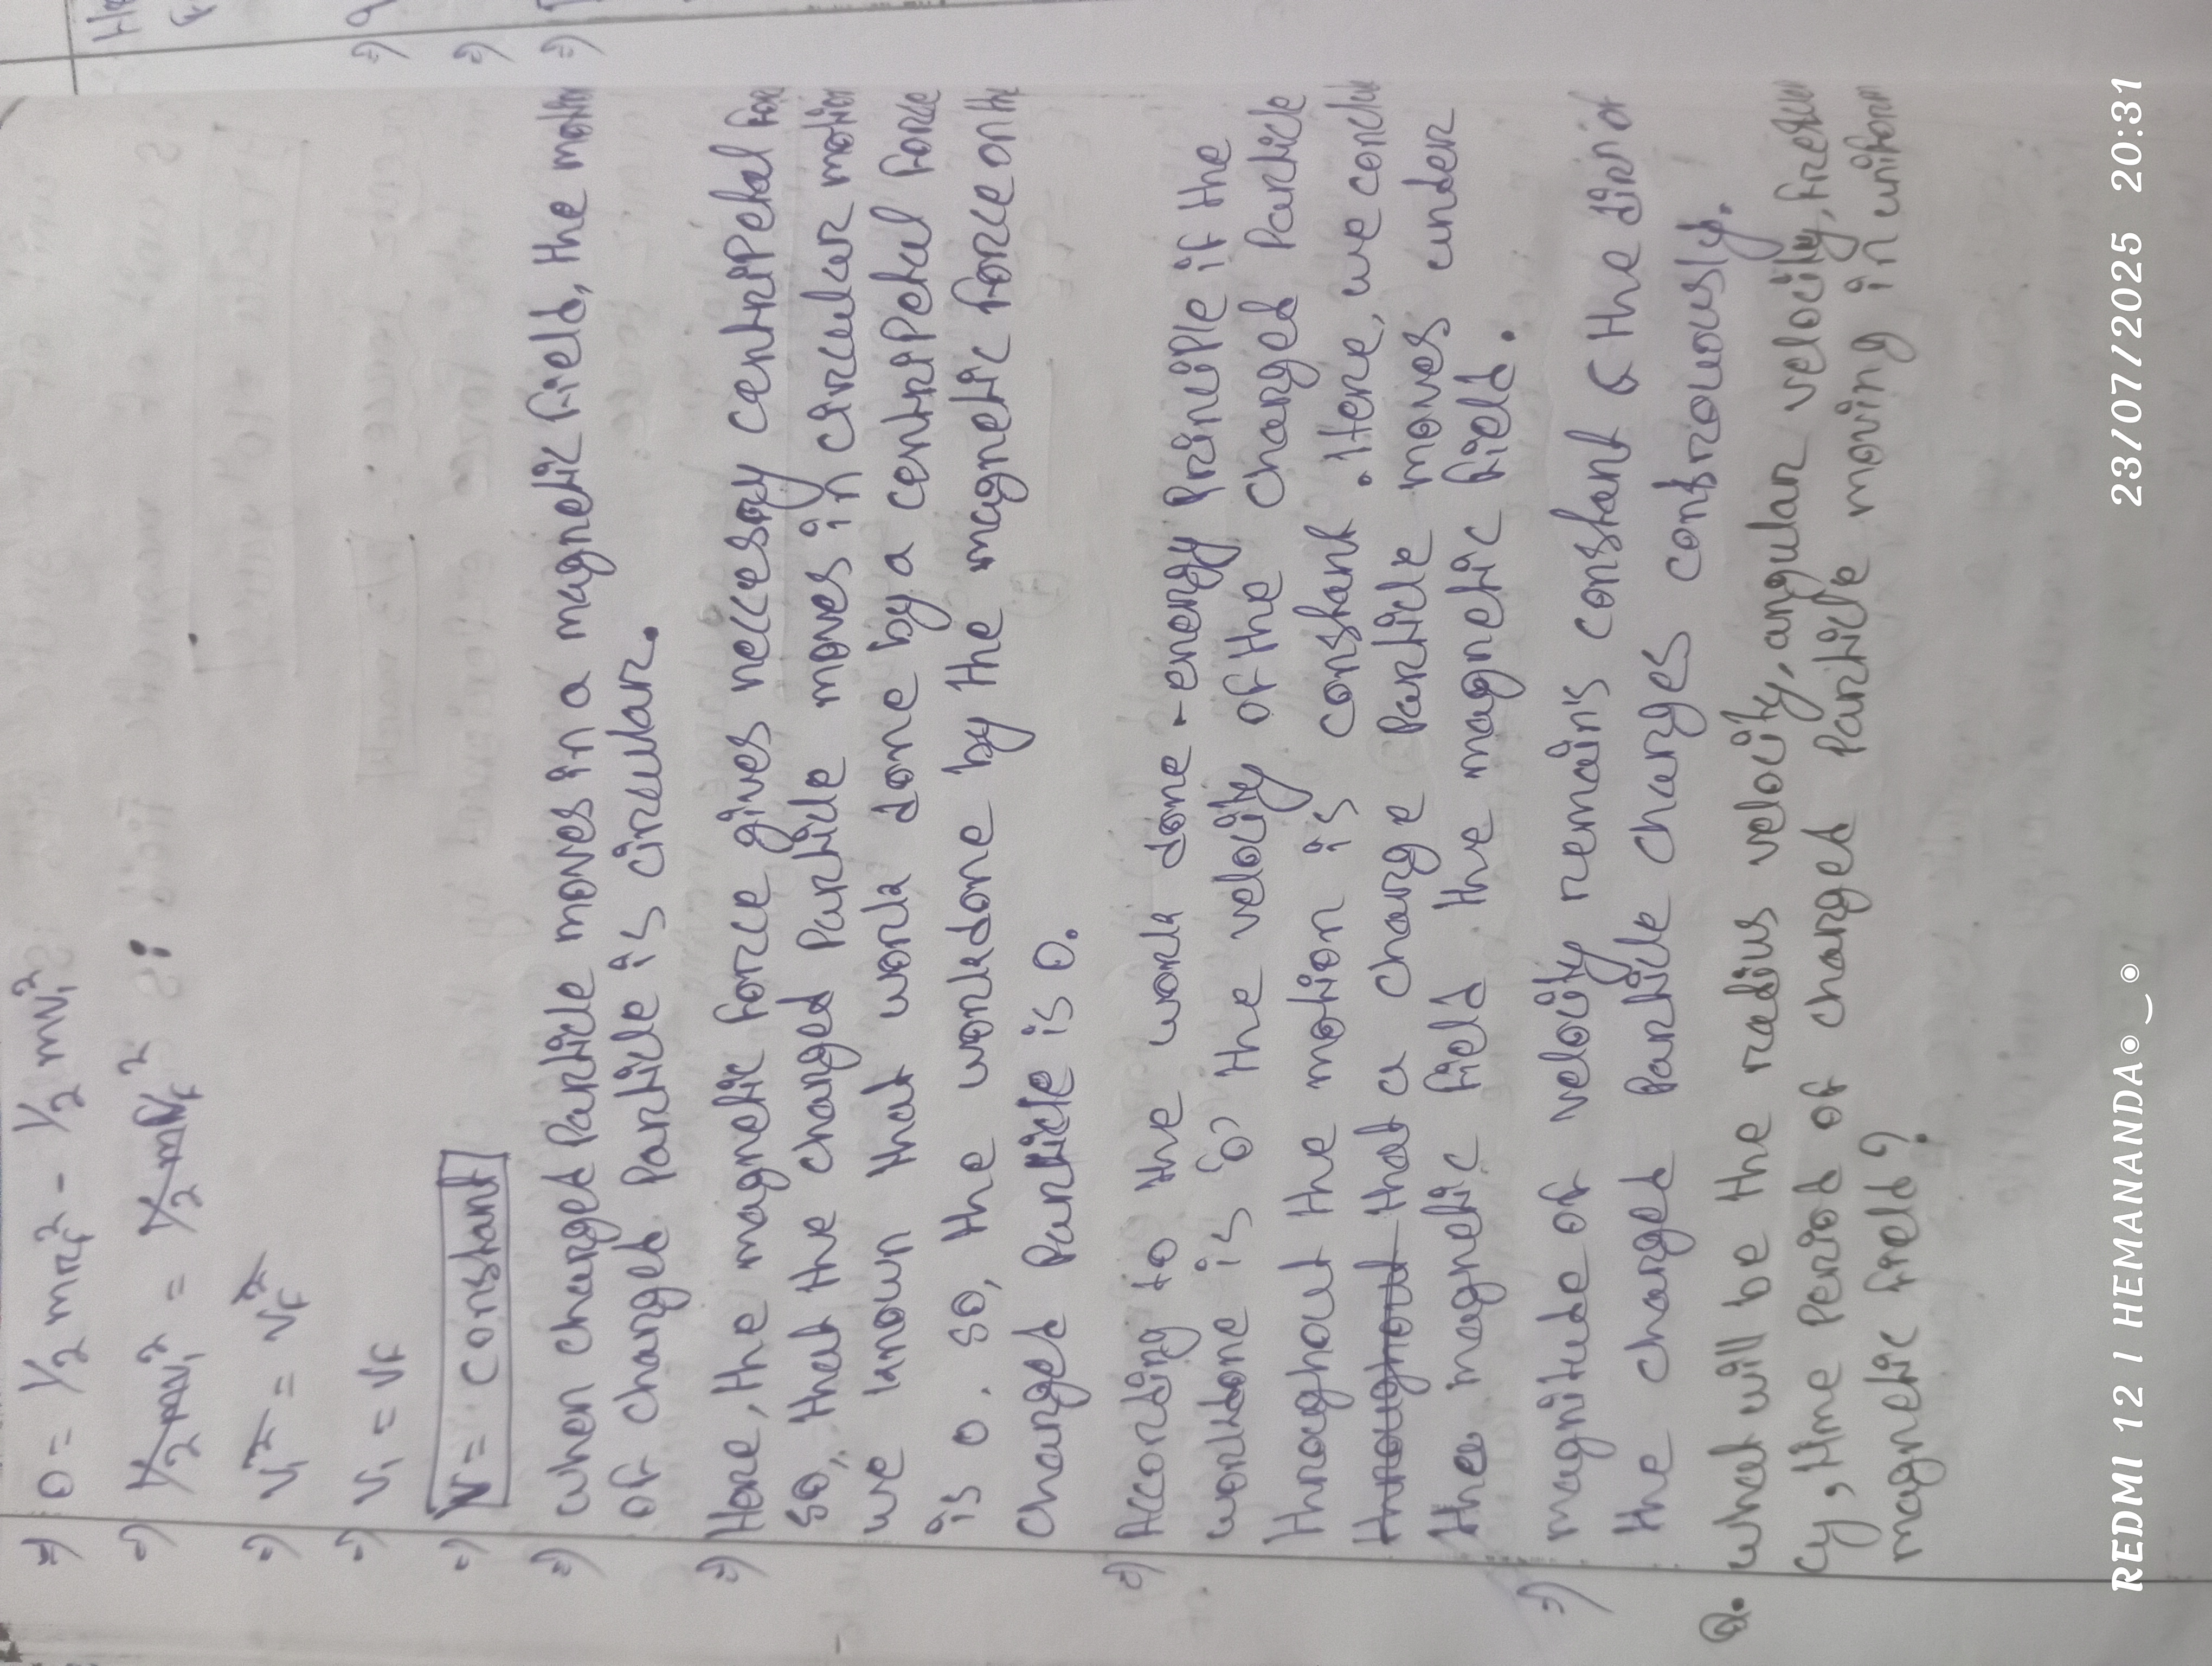 =) 0 = 1/2 mvf² - 1/2 mv₁²
=) 1/2 mv₁² = 1/2 mvf²
=) v₁² = vf²
=) v₁ = vf
=) v = constant
=) when charged Particle moves in a magnetic field, the
of charged Particle is circular.
=) Here, the magnetic force gives neccesory centriPetal
so, that the charged Particle moves in circular
we known that work done by a centriPetal force
is 0. so, the workdone by the magnetic force on
charged Particle is 0.
=) According to the work done - energy Principle if the
workdone is '0' the velocity of the charged Particle
throughout the motion is constant. Here, we
throughout that a charge Particle moves under
the magnetic field the magnetic field.
=) magnitude of velocity remains constant & the dirⁿ of
the charged Particle charges
Q. what will be the radius velocity, angular velocity,
cy, time Period of charged Particle moving in uniform
magnetic field?
REDMI 12 | HEMANANDA◉‿◉
23/07/2025 20:31